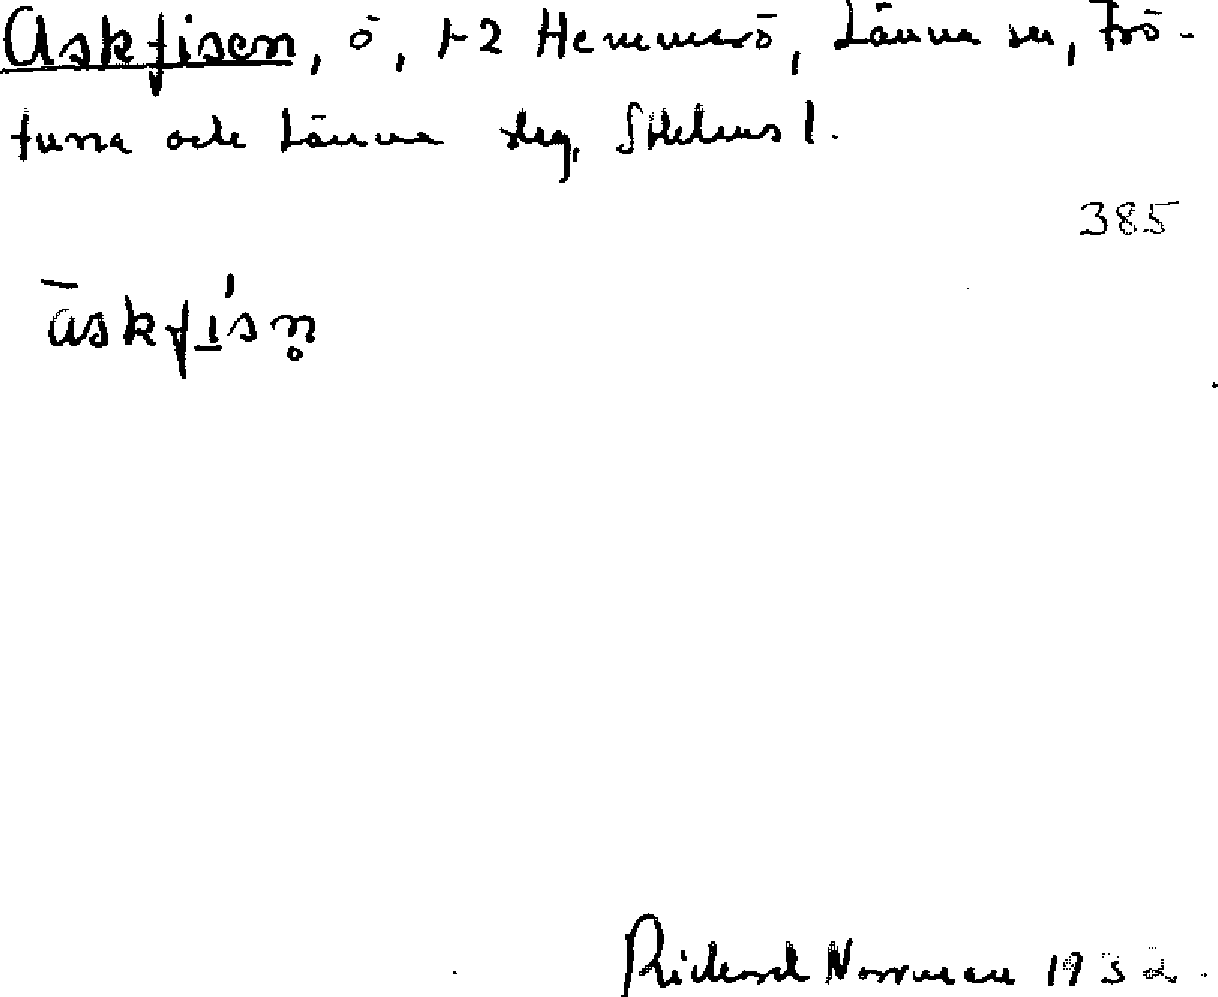 Askfisen, ö, 1-2 Hemmarö, Länna sn, Frö-
tuna och Länna slg, Sthlms l.
385
āskfi̱'sn̥
Rickard Norrman 1932.